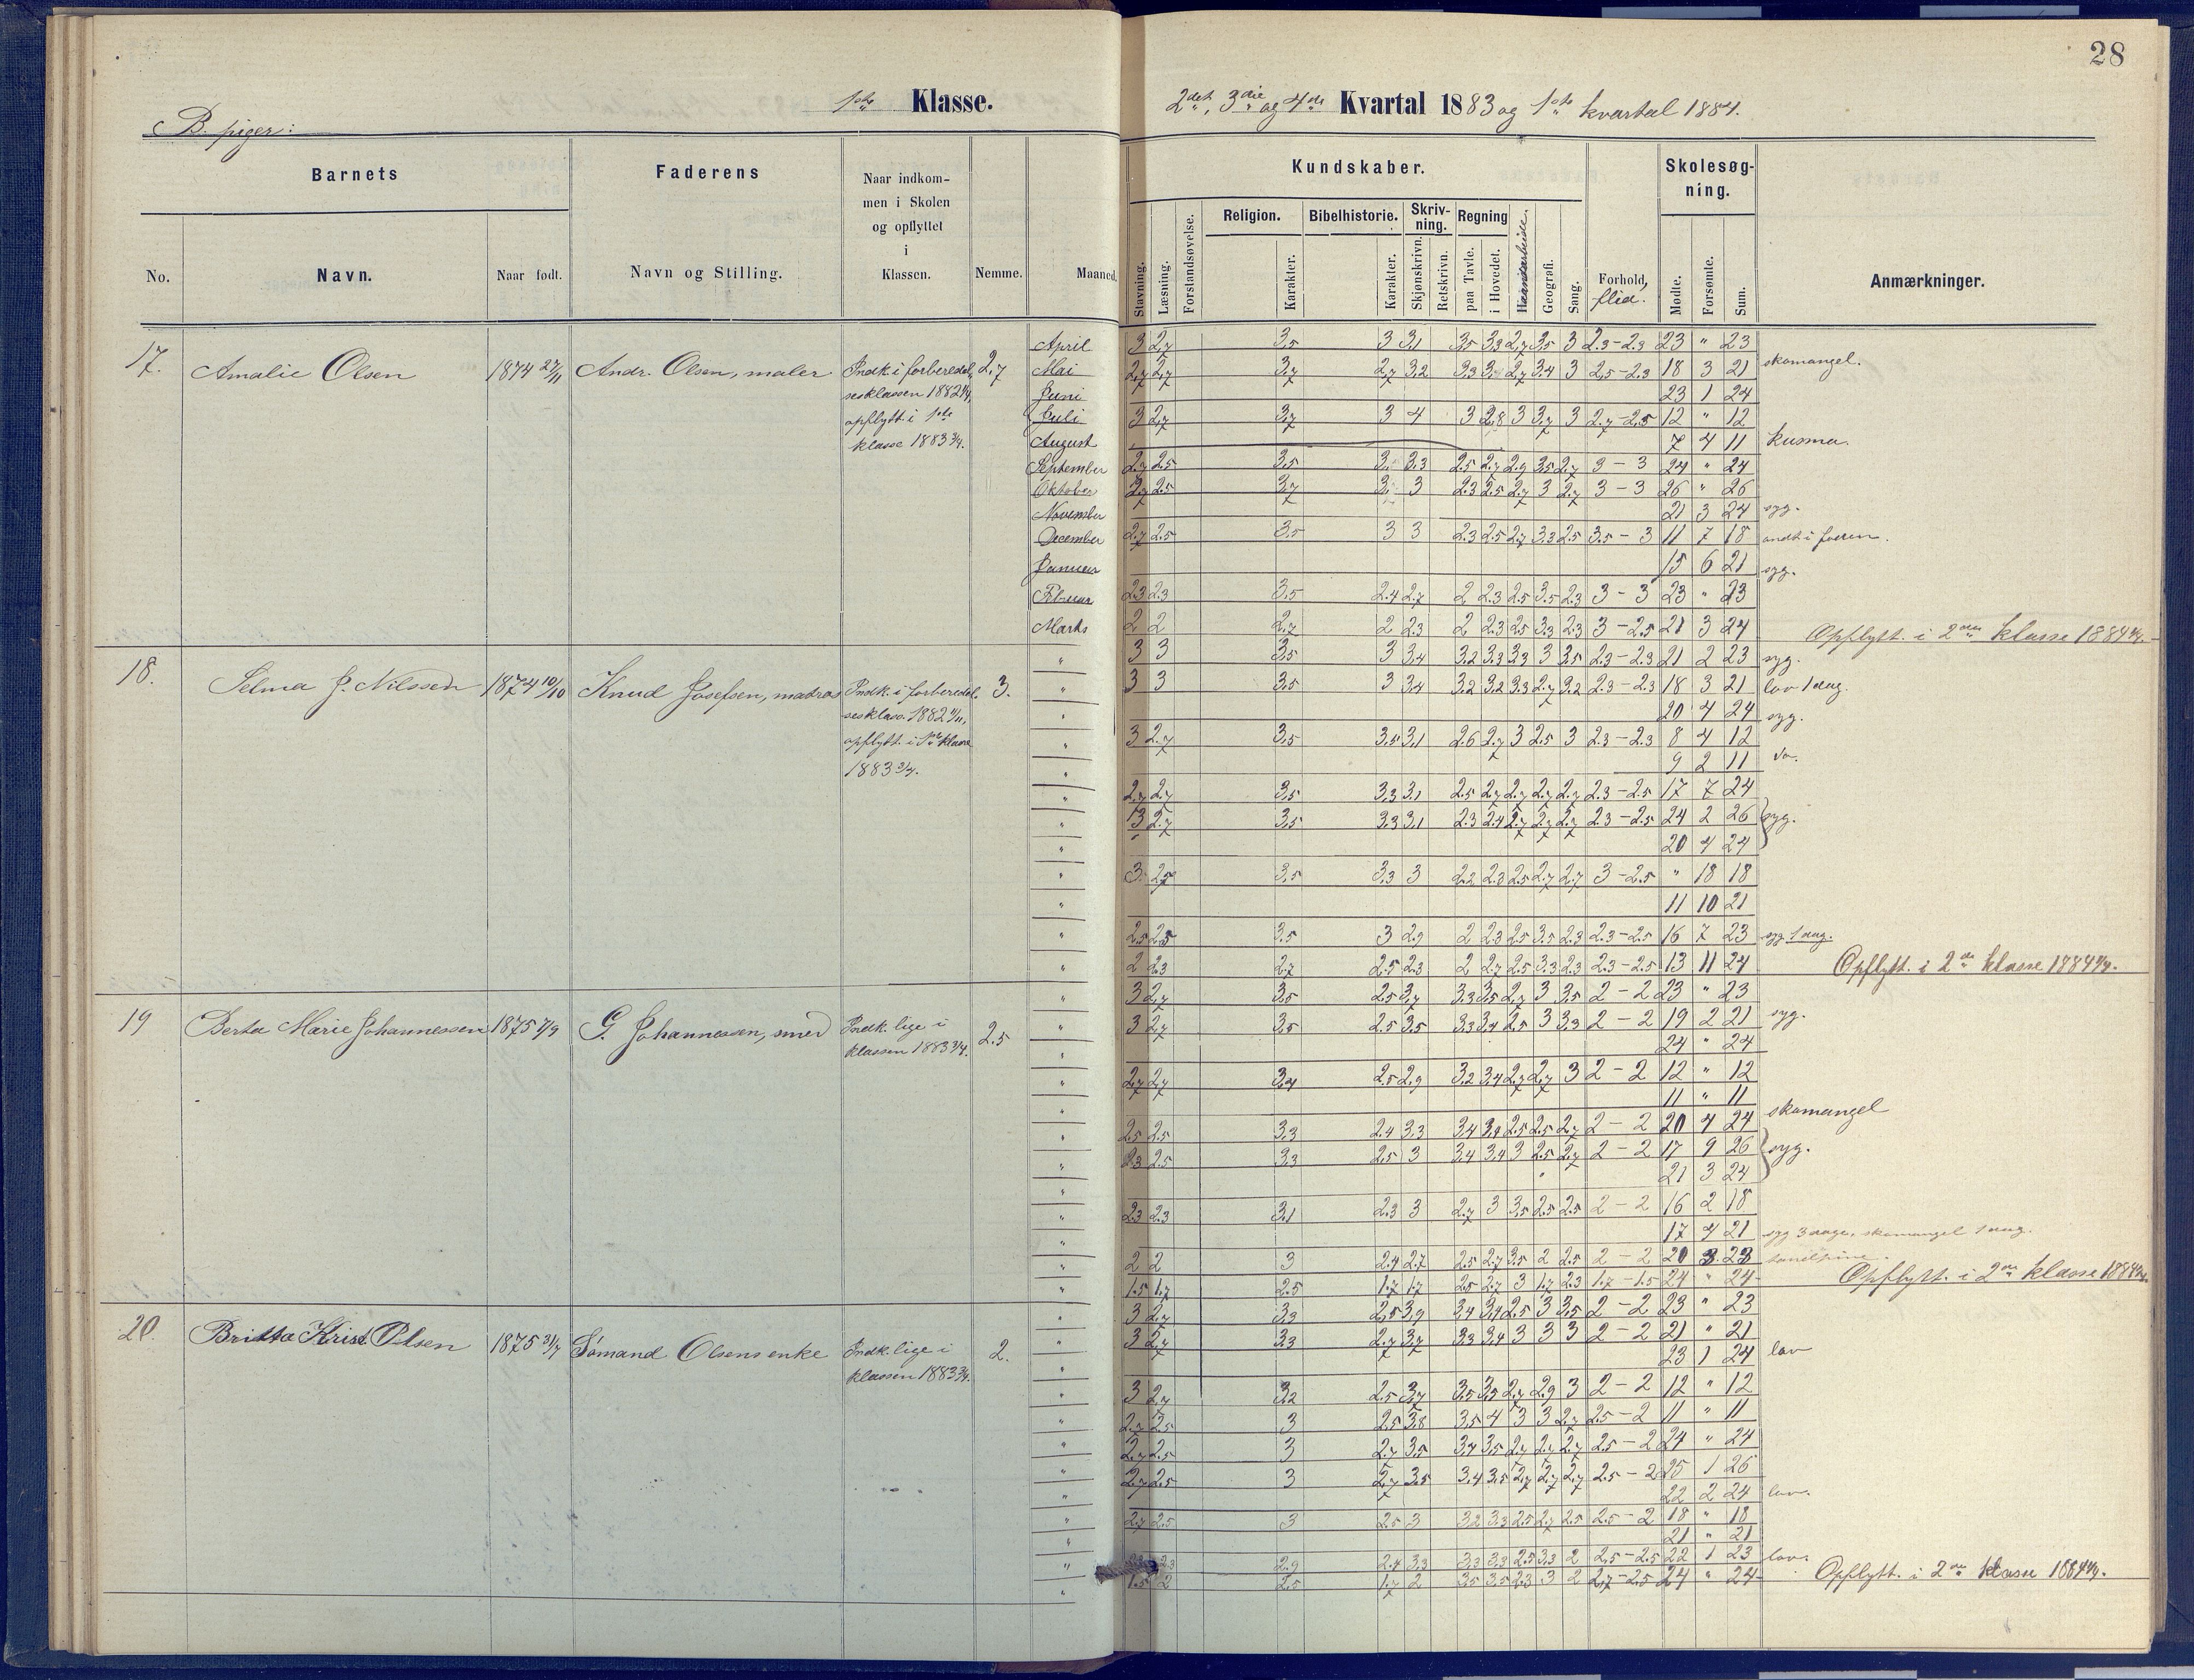 28
1ste Klasse.
2det, 3die og 4de Kvartal 1883 og 1ste kvartal 1884.
B. piger:
Barnets
Faderens
Naar indkom-
men i Skolen
og opflyttet
i
Klassen.
Nemme.
Maaned.
No.
Navn.
Naar født.
Navn og Stilling.
Kundskaber.
Skolesøg-
ning.
Religion.
Bibelhistorie.
Skriv-
ning.
Regning
Stavning.
Læsning.
Forstandsøvelse.
Karakter.
Karakter.
Skjønskrivn.
Retskrivn.
paa Tavle.
i Hovedet.
Haandarbeide.
Geografi.
Sang.
Forhold,
flid.
Mødte.
Forsømte.
Sum.
Anmærkninger.
17. Amalie Olsen 1874 27/11 Andr. Olsen, maler
Indk. i forberedel-
sesklassen 1882
opflytt. i 1ste
klasse 1883 3/4.
2,7
April 3 2,7 3,5 3 3,1 3,5 3,3 2,7 3,5 3 2.3-2.3 23 " 23
Mai 2,7 2,7 3,7 2,7 3,2 3.3 2,7 3.4 3 2,5-2.3 18 3 21 skomangel.
Juni 23 1 24
Juli 3 2,7 3,7 3 4 3 2,8 3 3,7 3 2.7-2.5 12 " 12
August 7 4 11 kusma.
September 2.7 2.5 3,5 3. 3.3 2.5 2.7 2.9 3.5 2.7 3-3 24 " 24
Oktober 2,7 2.5 3,7 3. 3 2.3 2.5 2.7 3 2.7 3-3 26 " 26
November 21 3 24 syg.
December 2.7 2.5 3,5 3 3 2.3 2.5 2.7 3.3 2.5 3.5-3 11 7 18
Januar 15 6 21 syg.
Februar 2.3 2.3 3.5 2.4 2.7 2 2.3 2.5 3.5 2.3 3-3 23 " 23
Marts 2 2 2.7 2 2.3 2 2.3 2.5 3.3 2.3 3-2.5 21 3 24 Opflytt. i 2den klasse 1884
18. Selma J. Nilssen 1874 10/10 Knud Josefsen, madros
Indk. i forberedel-
sesklass. 1882
opflytt. i 1ste klasse
1883 3/4.
3.
" 3 3 3.5 3 3.4 3.2 3.3 3.3 3 3.5 2.3-2.3 21 2 23 syg.
" 3 3 3.5 3 3.4 3.2 3.2 3.3 2.7 3.2 2.3-2.3 18 3 21 lov 1 dag.
" 20 4 24 syg.
" 3 2.7 3.5 3.5 3.1 2.6 2.7 3 2.5 3 2.3-2.3 8 4 12
" 9 2 11 do.
" 2.7 2.7 3.5 3.3 3.1 2.5 2.7 2.7 2.7 2.7 2.3-2.5 17 7 24
" 3 2.7 3.5 3.3 3.1 2.3 2.4 2.7 2.7 2.7 2.3-2.5 24 2 26 syg.
" 20 4 24
" 3 2.5 3.5 3.3 3 2.2 2.3 2.5 2.7 2.7 3-2.5 " 18 18
" 11 10 21
" 2.5 2.5 3.5 3 2.9 2 2.3 2.5 3.5 2.3 2.3-2.5 16 7 23 syg 1 dag.
" 2 2.3 2.7 2.5 2.3 2 2.7 2.5 3.3 2.3 2.3-2.5 13 11 24 Opflytt. i 2den klasse 1884
19 Berta Marie Johannessen 1875 7/9 G. Johannessen, smed
Indk. lige i
klassen 1883 3/4.
2.5
" 3 2,7 3.5 2.5 3,7 3.3 3.5 2.7 3 3.5 2-2 23 " 23
" 3 2.7 3.5 2.5 3.5 3.3 3.4 2.5 3 3.3 2-2 19 2 21 syg.
" 24 " 24
" 2,7 2,7 3,4 2.5 2.9 3.2 3.4 2.7 2.7 3 2-2 12 " 12
" 11 " 11
" 2.5 2.5 3.3 2.4 3.3 3.4 3.4 2.5 2.5 2.7 2-2 20 4 24 skomangel
" 2.3 2.5 3.3 2.5 3 3.4 3.4 3 2.5 2.7 2-2 17 9 26 syg.
" 21 3 24
" 2.3 2.3 3.1 2.3 3 2.7 3 3.5 2.5 2.5 2-2 16 2 18
" 17 4 21 syg 3 dage, skomangel 1 dag.
" 2 2 3 2.4 2.7 2.5 2.7 3.5 2 2.5 2-2 20 3 23 tandpine.
" 1.5 1.7 2.5 1.7 1.7 2.5 2.7 3 1.7 2.3 1.7-1.5 24 " 24 Opflytt. i 2den klasse 1884
20. Britta Krist. Olsen 1875 31/7 Sømand Olsens enke
Indk. lige i
klassen 1883 3/4.
2.
" 3 2,7 3.3 2.5 3.9 3.4 3.4 2.5 3 3.5 2-2 23 " 23
" 3 2,7 3.3 2.7 3.7 3.3 3.4 3 3 3 2-2 21 " 21
" 23 1 24 lov
" 3 2,7 3.2 2.5 3.7 3.5 3.5 2.7 2.9 3 2-2 12 " 12
" 2.7 2.5 3 2.5 3.8 3.5 4 3 3 2.7 2.5-2 11 " 11
" 2.7 2.5 3 2.7 3.5 3.4 3.5 2.7 2.7 2.7 2.5-2 24 " 24
" 2.7 2.5 3 2.7 3.5 3.4 3.5 2.7 2.7 2.7 2.5-2 25 1 26
" 22 2 24 lov.
" 2.7 2.5 3 2.5 3 3.2 3.3 2.5 2.7 2.5 2.5-2 18 " 18
" 21 " 21
" 2.3 2.9 2.4 3.3 3.3 3.3 2.5 3.3 2 2.5-2.5 22 1 23 lov.
" 1.5 2 2.5 1.7 2 3.5 3.5 2.3 3 2 2.7-2.5 24 " 24 Opflytt. i 2den klasse 1884